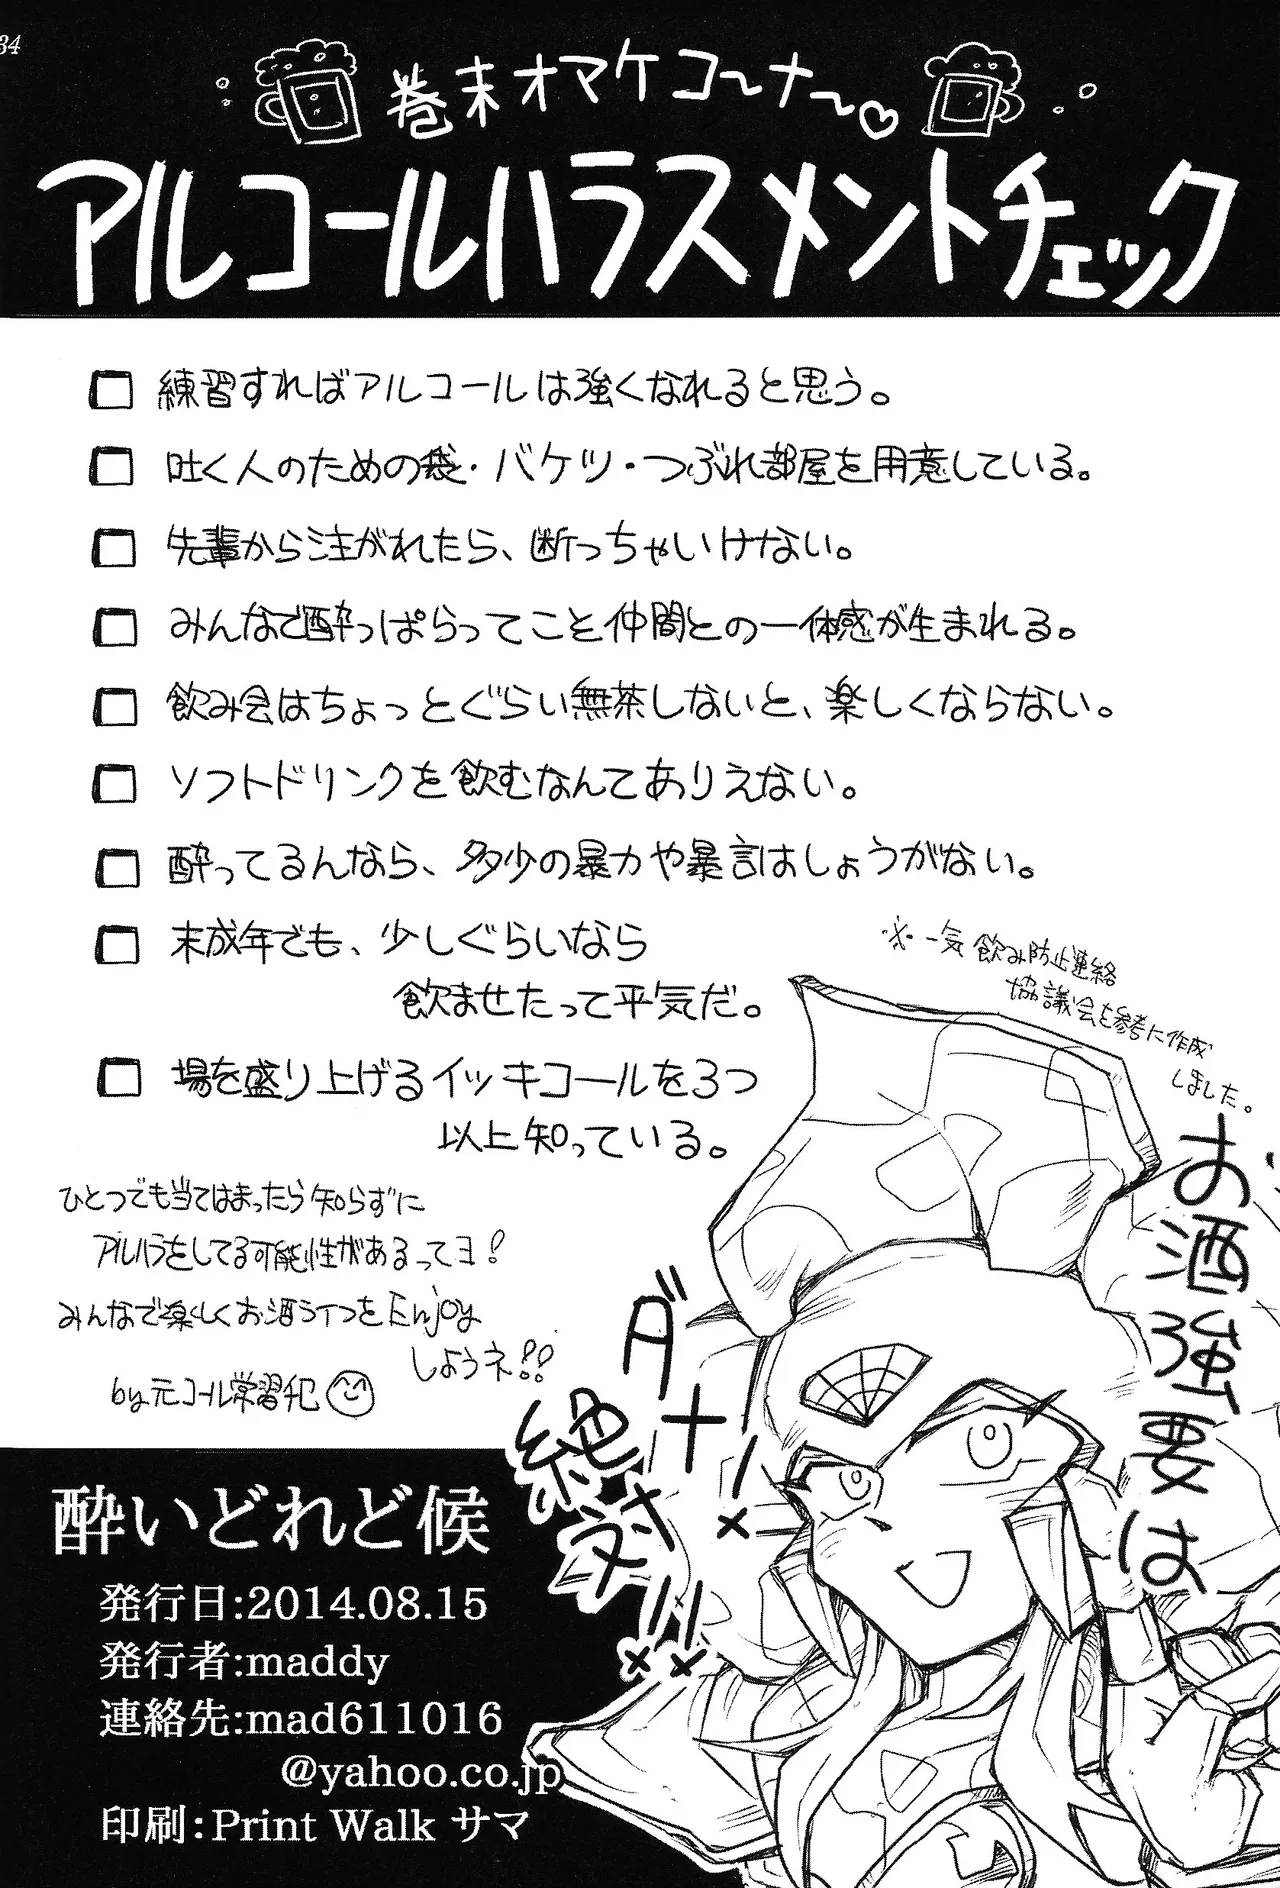 34
巻末オマケコ〜ナ〜♡
アルコールハラスメントチェック
□ 練習すればアルコールは強くなれると思う。
□ 吐く人のための袋・バケツ・つぶれ部屋を用意している。
□ 先輩から注がれたら、断っちゃいけない。
□ みんなで酔っぱらってこと仲間との一体感が生まれる。
□ 飲み会はちょっとぐらい無茶しないと、楽しくならない。
□ ソフトドリンクを飲むなんてありえない。
□ 酔ってるんなら、多少の暴力や暴言はしょうがない。
□ 未成年でも、少しぐらいなら
飲ませたって平気だ。
□ 場を盛り上げるイッキコールを3つ
以上知っている。
※一気飲み防止連絡
協議会を参考に作成
しました。
ひとつでも当てはまったら知らずに
アルハラをしてる可能性があるってヨ!
みんなで楽しくお酒ライフをEnjoy
しようネ!!
by元コール常習犯
お酒強要は
絶対
ダナー×
!!
酔いどれど候
発行日:2014.08.15
発行者:maddy
連絡先:mad611016
@yahoo.co.jp
印刷:Print Walk サマ